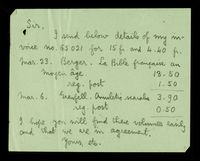 Sir.
I send below details of my in-
voice no. 65021 for 15 fr. and 4.40 fr.
Mar. 23. Berger. La Bible française au
Moyen âge 13.50
reg. post 1.50
Mar. 6. Grenfell. Amulette 3.90
reg. post 0.50
I hope you will find these volumes easily
and that we are in agreement.
Yours, etc.